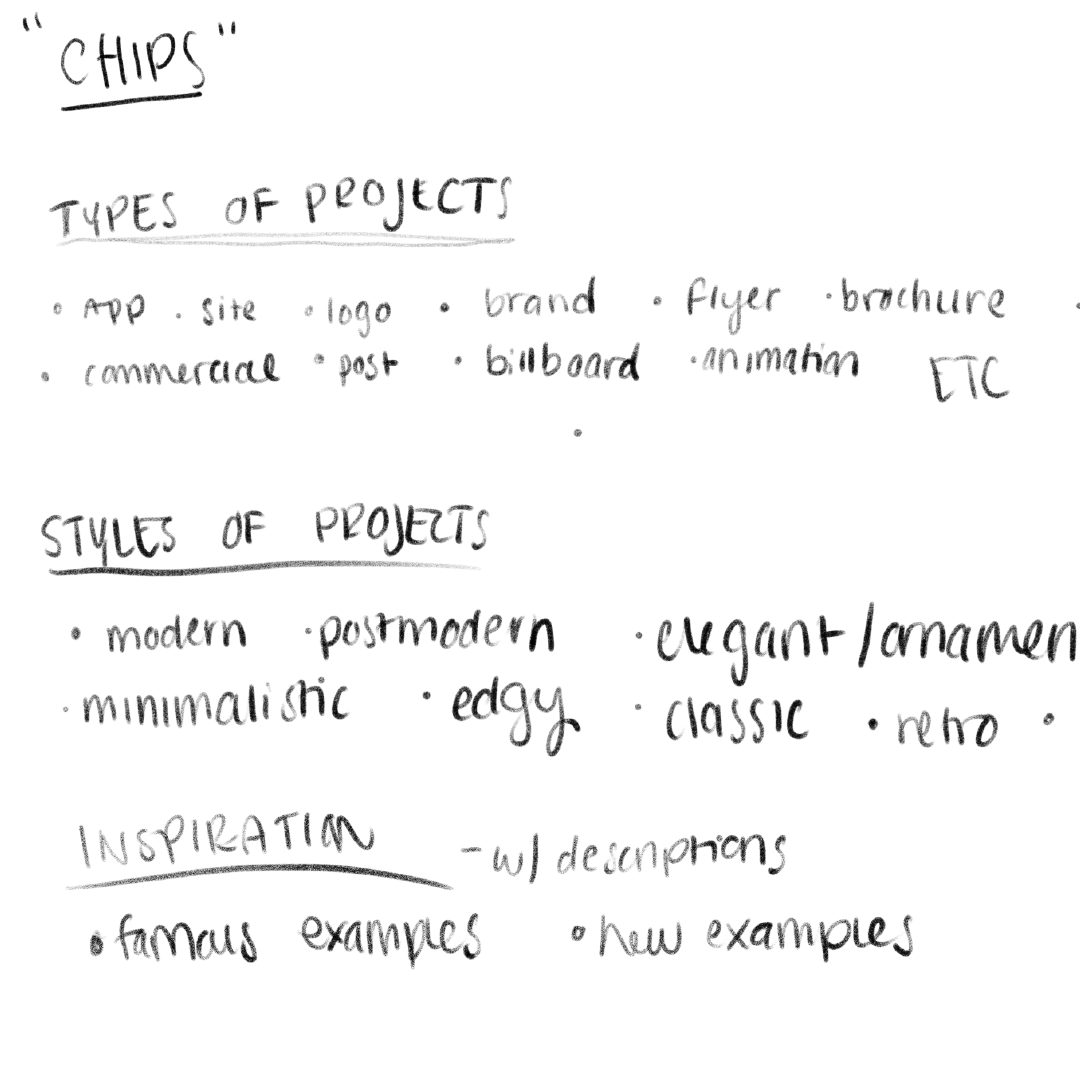 "CHIPS"
TYPES OF PROJECTS
• APP • site • logo • brand • flyer • brochure •
• commercial • post • billboard • animation ETC
•
STYLES OF PROJECTS
• modern • postmodern • elegant/ornamen
• minimalistic • edgy • classic • retro •
INSPIRATION - w/ descriptions
• famous examples • new examples